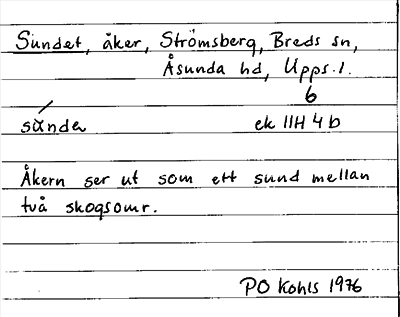 Sundet, åker, Strömsberg, Breds sn,
Åsunda hd, Upps. l.
6
sunde ek 11H 4 b
Åkern ser ut som ett sund mellan
två skogsomr.
PO Kohls 1976